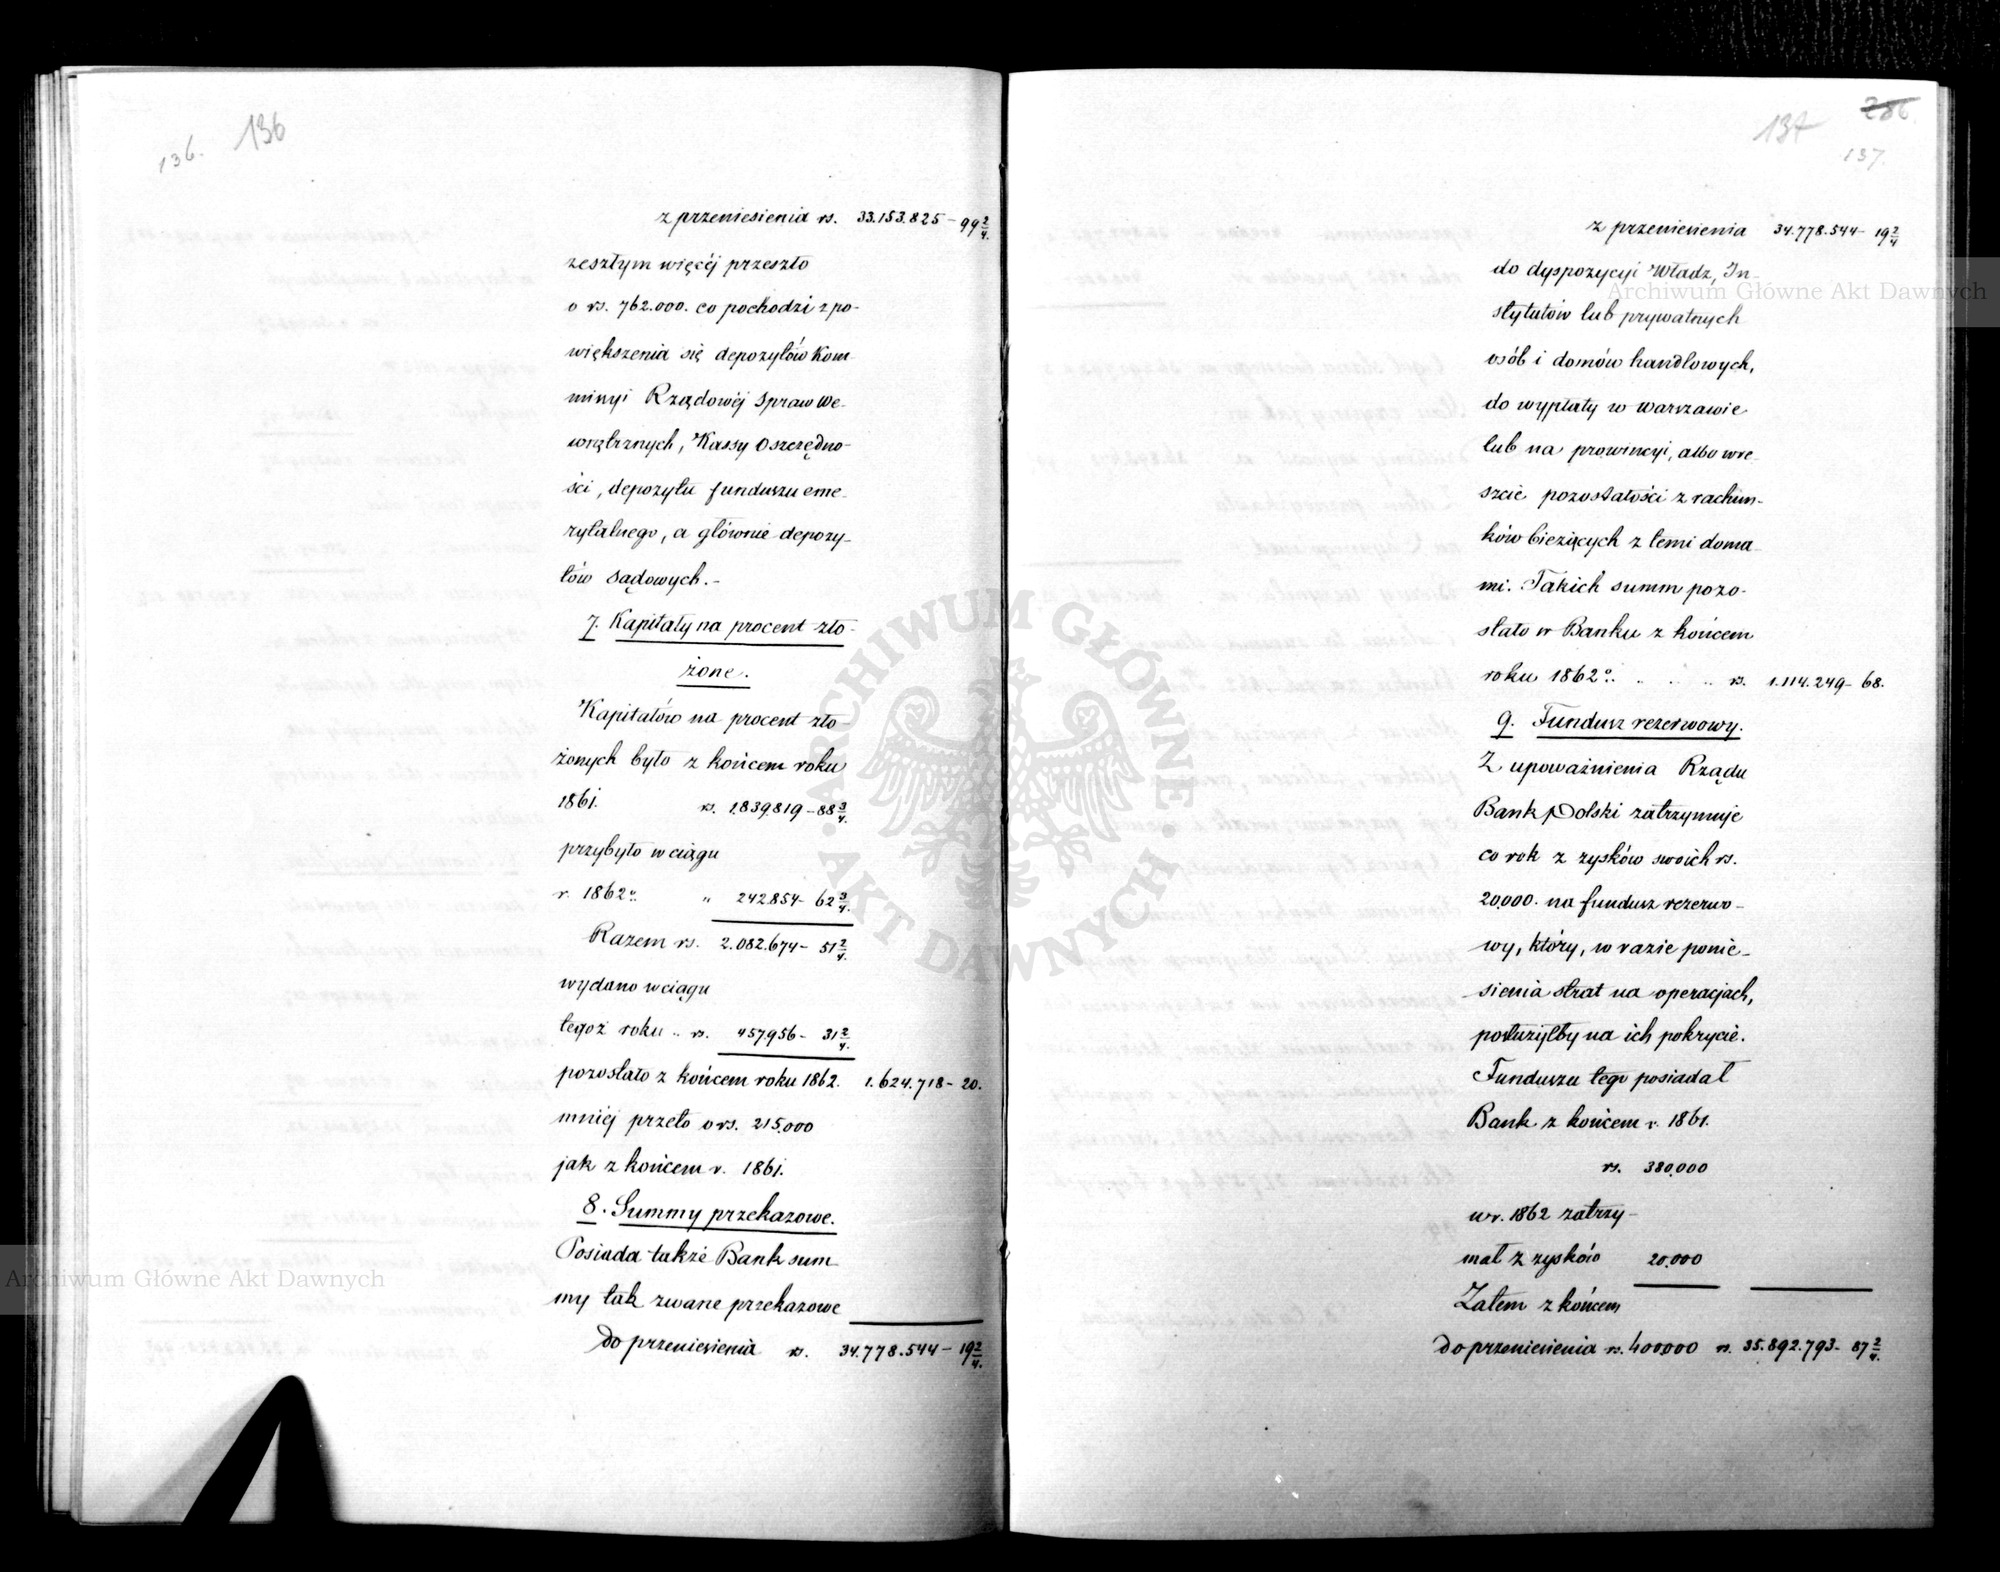 136. 136
z przeniesienia rs. 33.153.825 - 99 2/4.
zeszłym więcéj przeszło
o rs. 762.000. co pochodzi z po-
większenia się depozytów Kom-
missyi Rządowéj Spraw We-
wnętrznych, Kassy Oszczędno-
ści, depozytu funduszu eme-
rytalnego, a głównie depozy-
tów Sądowych.-
7. Kapitały na procent zło-
żone.
Kapitałów na procent zło-
żonych było z końcem roku
1861. rs. 1.839.819 - 88 3/4.
przybyło w ciągu
r. 1862o.. " 242.854 - 62 3/4.
Razem rs. 2.082.674 - 51 2/4.
wydano w ciągu
tegoż roku .. rs. 457.956 - 31 2/4.
pozostało z końcem roku 1862. 1.624.718 - 20.
mniéj przeto o rs. 215.000
jak z końcem r. 1861.
8. Summy przekazowe.
Posiada także Bank sum
my tak zwane przekazowe
do przeniesienia rs. 34.778.544 - 19 2/4.
286
137
137.
z przeniesienia 34.778.544 - 19 2/4
do dyspozycyi Władz, In-
stytutów lub prywatnych
osób i domów handlowych,
do wypłaty w Warszawie
lub na prowincyi, albo wre-
szcie pozostałości z rachun-
ków bieżących z temi doma-
mi. Takich summ pozo-
stało w Banku z końcem
roku 1862o. . . .. rs. 1.114.249 - 68.
9. Fundusz rezerwowy.
Z upoważnienia Rządu
Bank Polski zatrzymuje
co rok z zysków swoich rs.
20.000. na fundusz rezerwo-
wy, który, w razie ponie-
sienia strat na operacjach,
posłużyłby na ich pokrycie.
Funduszu tego posiadał
Bank z końcem r. 1861.
rs. 380.000
w r. 1862 zatrzy-
mał z zysków 20.000
Zatem z końcem
do przeniesienia rs. 400.000 rs. 35.892.793 - 87 2/4.
Archiwum Główne Akt Dawnych
Archiwum Główne Akt Dawnych
ARCHIWUM GŁÓWNE · AKT DAWNYCH ·